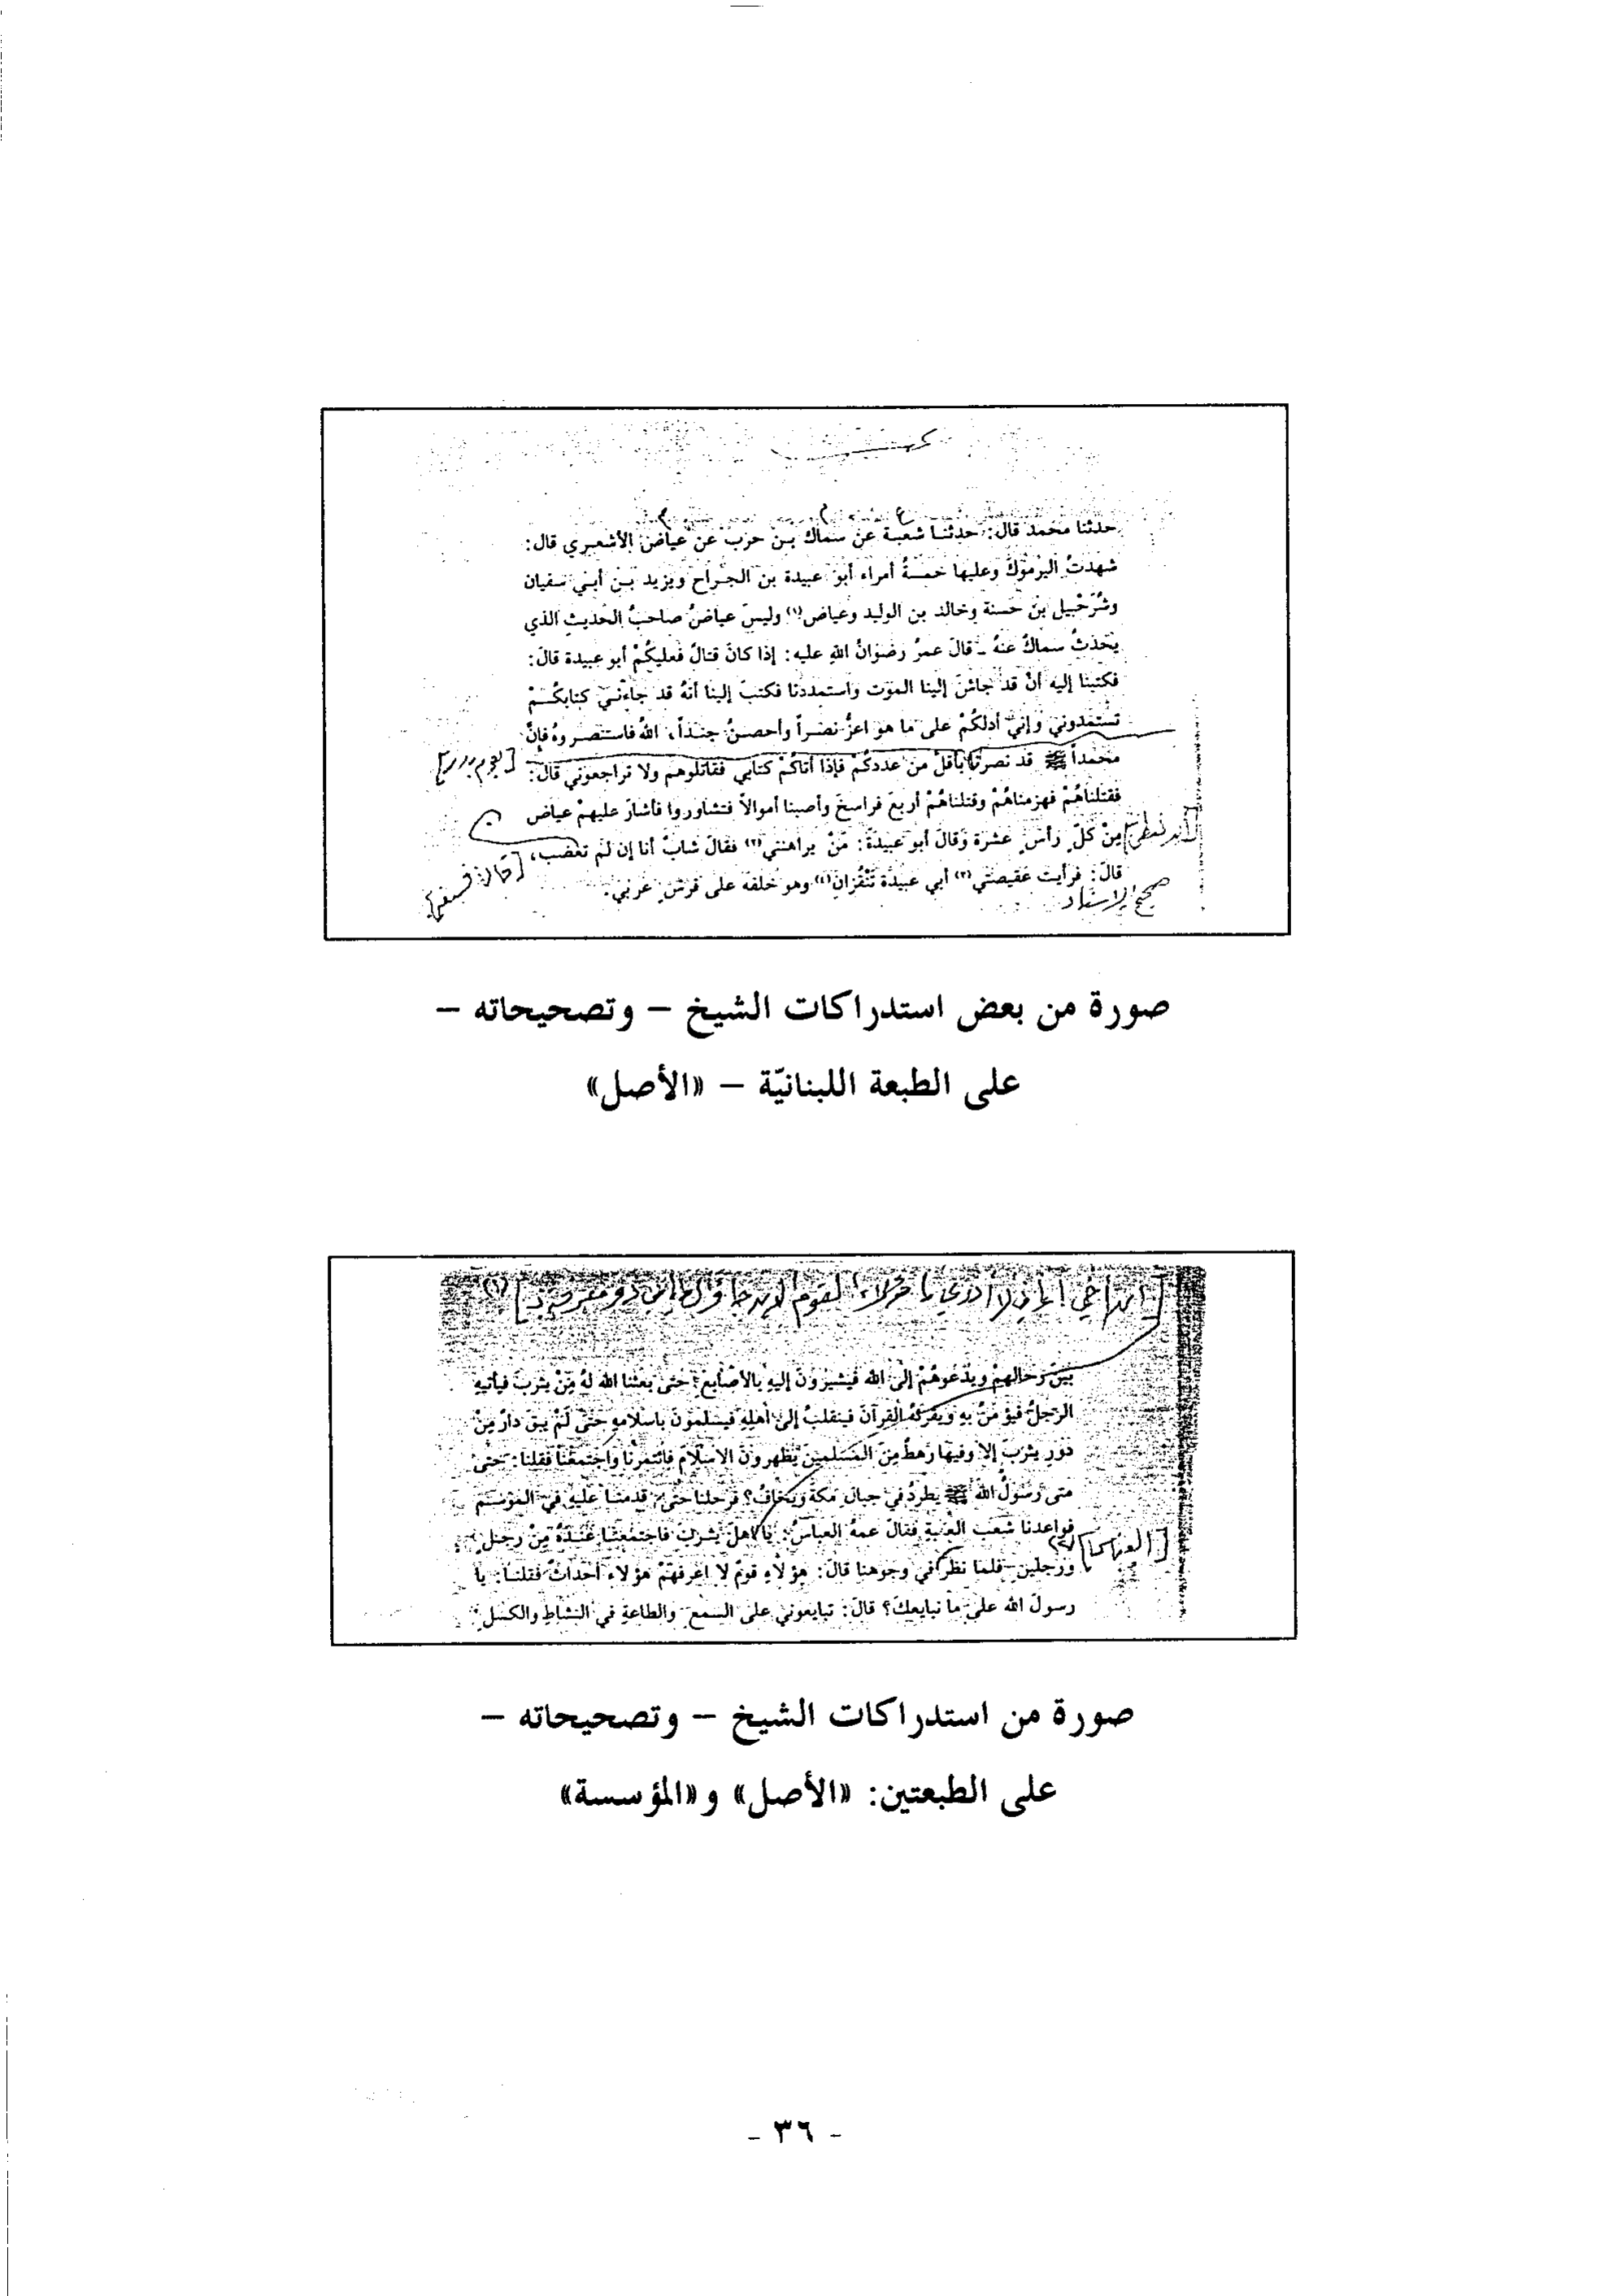 حدثنا محمد قال: حدثنا شعبة عن سماك بن حرب عن عياض الأشعري قال:
شهدتُ اليرموكَ وعليها خمسةُ أمراء أبو عبيدة بن الجراح ويزيد بن أبي سفيان
وشُرَحْبيل بن حسنة وخالد بن الوليد وعياض(١) وليسَ عياضُ صاحبُ الحديثِ الذي
يحدثُ سماكُ عنهُ - قالَ عمرُ رضوانُ اللهِ عليه: إذا كانَ قتالٌ فعليكُمْ أبو عبيدة قالَ:
فكتبنا إليه أنْ قد جاشَ إلينا الموت واستمددنا فكتبَ إلينا أنهُ قد جاءَني كتابكُمْ
تستمدوني وإني أدلكُمْ على ما هو اعزُّ نصراً وأحصنُ جنداً، اللهُ فاستنصروهُ فإنَّ
محمداً ﷺ قد نصر بأقلَّ من عددكُمْ فإذا أتاكُمْ كتابي فقاتلوهم ولا تراجعوني قالَ: [يوم بدر]
فقتلناهُمْ فهزمناهُمْ وقتلناهُمْ أربعَ فراسخَ وأصبنا أموالاً فتشاوروا فأشارَ عليهمْ عياض
[أن نعطي] مِنْ كلِّ رأسٍ عشرة وقالَ أبو عبيدةَ: مَنْ يراهنني(٢) فقالَ شابٌ أنا إن لم تغضب،
[قال: فسبقه]
قالَ: فرأيت عقيصتي(٣) أبي عبيدة تَنْقُزانِ(٤) وهو خلفه على فرسٍ عربي.
صحيح الإسناد
صورة من بعض استدراكات الشيخ – وتصحيحاته –
على الطبعة اللبنانيّة – «الأصل»
بينَ رحالهِمْ ويدْعوهُمْ إلى الله فيشيرُونَ إليهِ بالأصابعِ حتى بعثنا الله لهُ مِنْ يثربَ فيأتيهِ
الرجلُ فيؤمنُ بهِ ويقرئهُ القرآنَ فينقلبُ إلى أهلِهِ فيسلمونَ بإسلامهِ حتى لَمْ يبقَ دارٌ مِنْ
دورِ يثربَ إلا وفيها رهطٌ مِنَ المسلمينَ يُظهرونَ الاسْلامَ فائتمرنا واجتمعنا فقلنا: حتى
متى رسولُ الله ﷺ يطردُ في جبالِ مكةَ ويخافُ؟ فرحلنا حتى قدمنا عليهِ في الموسم
فواعدنا شعب العقبةِ فقالَ عمهُ العباسُ: يا أهلَ يثربَ فاجتمعنا عندهُ مِنْ رجلٍ
ورجلينِ فلما نظر في وجوهنا قالَ: هؤلاءِ قومٌ لا اعرفهُمْ هؤلاءِ أحداثٌ فقلنا: يا
[العباس]
رسولَ الله على ما نبايعك؟ قالَ: تبايعوني على السمعِ والطاعةِ في النشاطِ والكسلِ
صورة من استدراكات الشيخ – وتصحيحاته –
على الطبعتين: «الأصل» و«المؤسسة»
- ٣٦ -